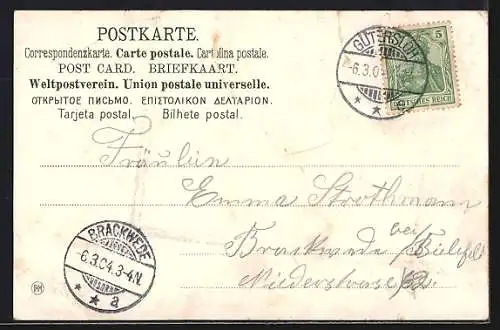 POSTKARTE.
Correspondenzkarte. Carte postale. Cartolina postale.
POST CARD. BRIEFKAART.
Weltpostverein. Union postale universelle.
ОТКРЫТОЕ ПИСЬМО. ΕΠΙΣΤΟΛΙΚΟΝ ΔΕΛΤΑΡΙΟΝ.
Tarjeta postal. Bilhete postal.
GÜTERSLOH
6.3.04
5
DEUTSCHES REICH
Fräulein
Emma Strothmann
Brackwede bei Bielefeld
Niederstrasse
BRACKWEDE
6.3.04.3-4N.
* * a